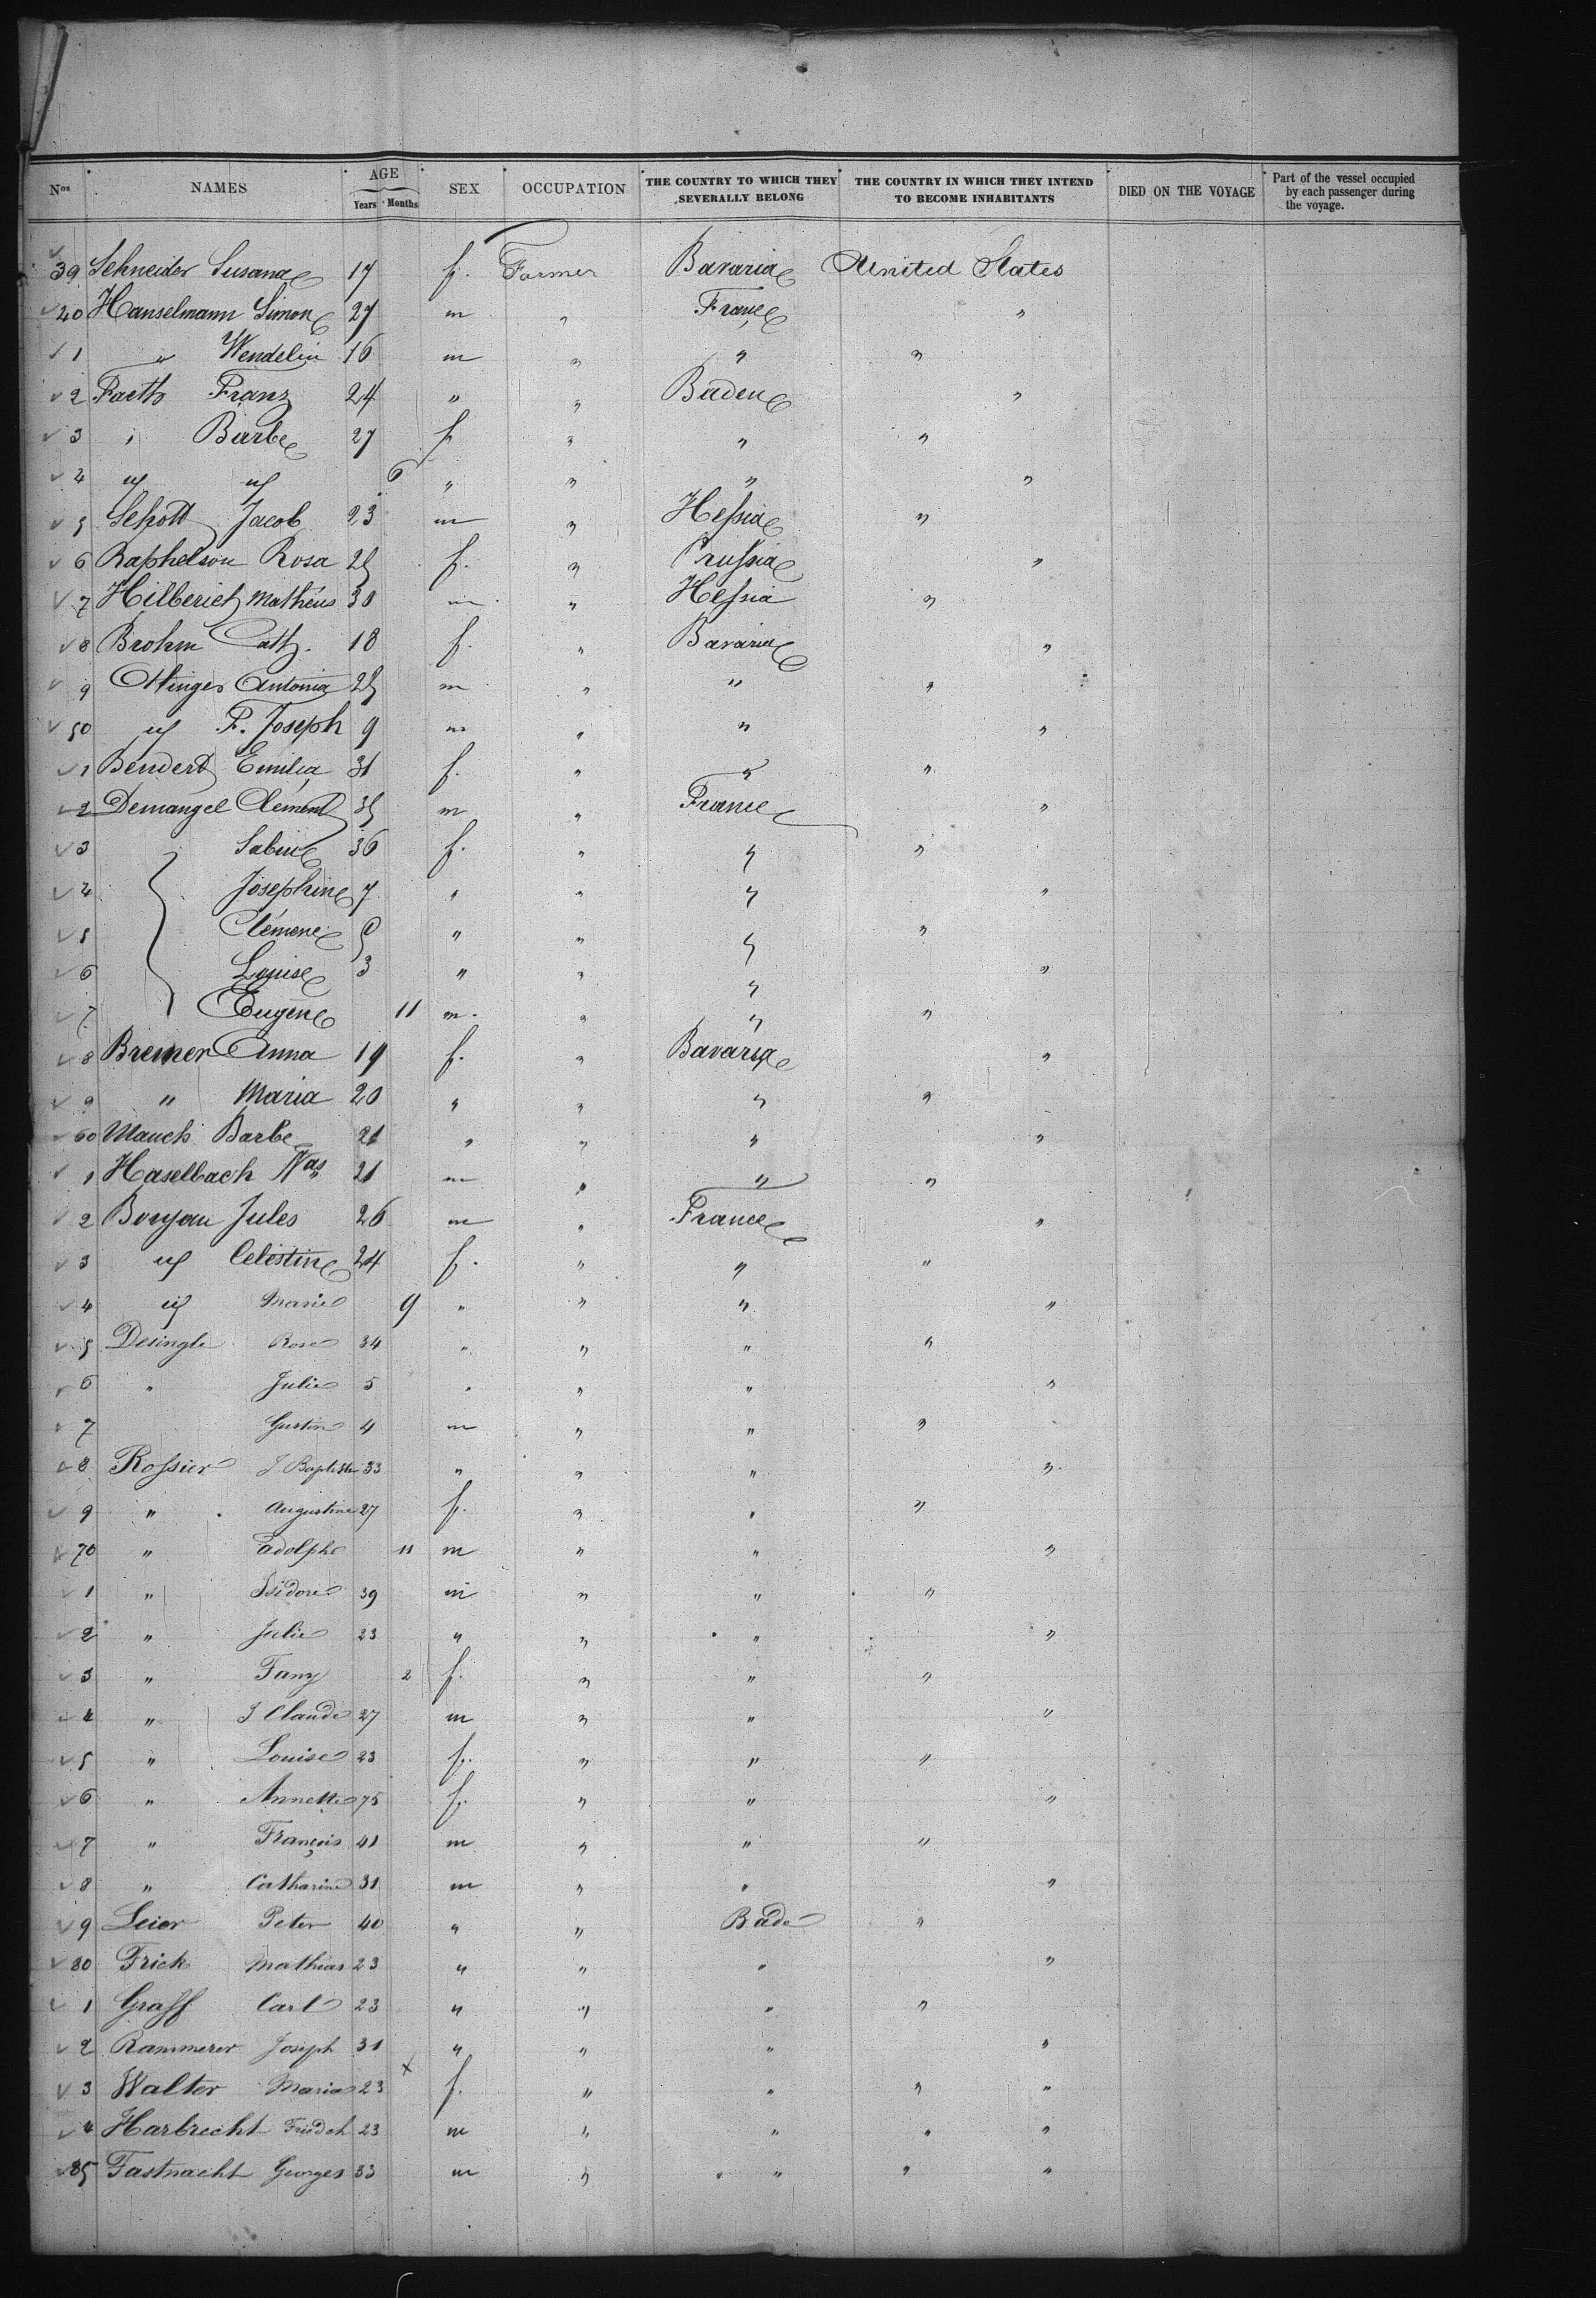 Nos NAMES AGE Years Months SEX OCCUPATION THE COUNTRY TO WHICH THEY SEVERALLY BELONG THE COUNTRY IN WHICH THEY INTEND TO BECOME INHABITANTS DIED ON THE VOYAGE Part of the vessel occupied by each passenger during the voyage.
39 Schneider Susana 17 f. Farmer Bavaria United States
40 Hanselmann Simon 27 m " France "
1 " Wendelin 16 m " " "
2 Faeth Franz 24 " " Baden "
3 " Barbe 27 f " " "
4 " " 6 " " " "
5 Schott Jacob 23 m " Hessia "
6 Raphelson Rosa 25 f. " Prussia "
7 Hilberich Mathéus 30 m " Hessia "
8 Brohm Cath. 18 f. " Bavaria "
9 Antonia 25 m " " "
50 " F. Joseph 9 m " " "
1 Bendert Emilia 31 f. " " "
2 Demangel Clément 35 m " France "
3 Sabine 36 f. " " "
4 Josephine 7 " " " "
5 Clémence 5 " " " "
6 Louise 3 " " " "
7 Eugène 11 m. " " "
8 Bremer Anna 19 f. " Bavaria "
9 " Maria 20 " " " "
60 Mauch Barbe 21 " " " "
1 Haselbach Nas 21 m " " "
2 Boujau Jules 26 m " France "
3 " Celestine 24 f. " " "
4 " Marie 9 " " " "
5 Desingle Rose 34 " " " "
6 " Julie 5 " " " "
7 Gustin 4 m " " "
8 Rossier J Baptiste 33 " " " "
9 " Augustine 27 f. " " "
70 " Adolphe 11 m " " "
1 " Isidore 39 m " " "
2 " Julie 23 " " " "
3 " Fany 2 f. " " "
4 " J Claude 27 m " " "
5 " Louise 23 f. " " "
6 " Annette 75 f. " " "
7 " François 41 m " " "
8 " Catharine 31 m " " "
9 Leier Peter 40 " " Bade "
80 Frick Mathias 23 " " " "
1 Graff Carl 23 " " " "
2 Rammerer Joseph 31 " " " "
3 Walter Maria 23 x f. " " " "
4 Harbrecht Friedch 23 m " " " "
85 Fastnacht Georges 33 m " " " "